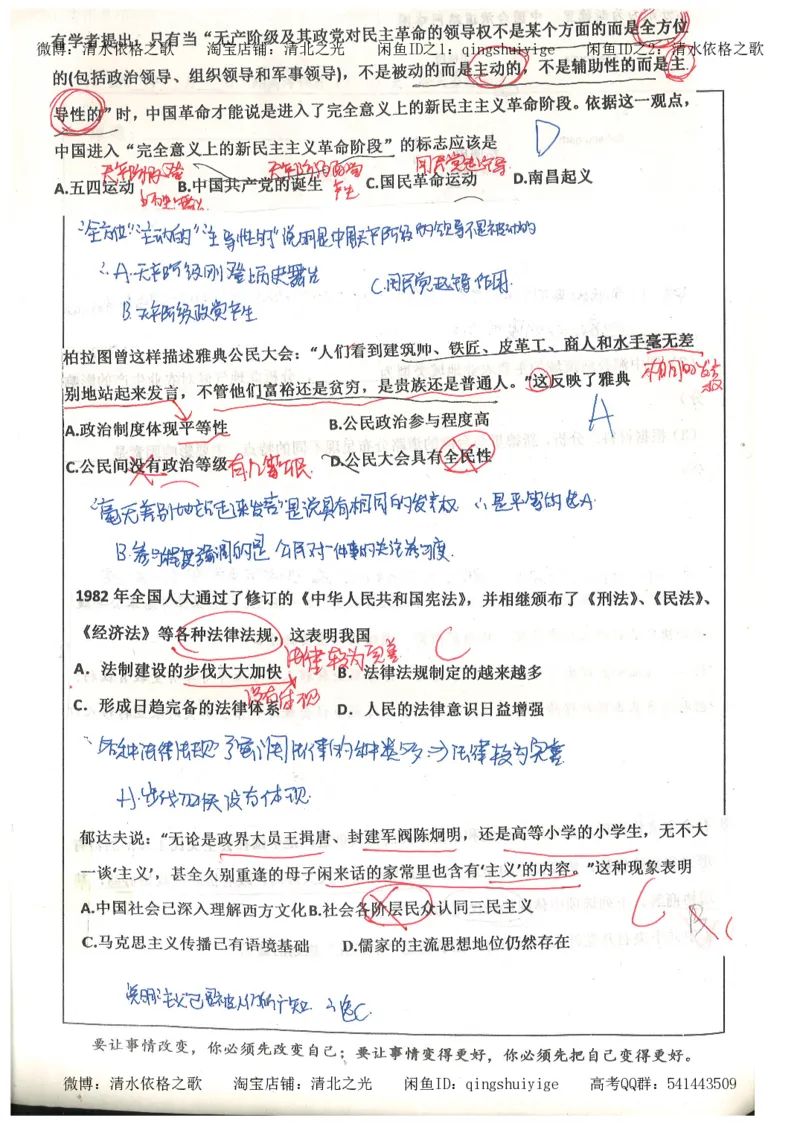 有学者提出，只有当“无产阶级及其政党对民主革命的领导权不是某个方面的而是全方位
微博：清水依格之歌 淘宝店铺：清北之光 闲鱼ID之1：qingshuiyige 闲鱼ID之2：清水依格之歌
的(包括政治领导、组织领导和军事领导)，不是被动的而是主动的，不是辅助性的而是主
导性的”时，中国革命才能说是进入了完全意义上的新民主主义革命阶段。依据这一观点，
中国进入“完全意义上的新民主主义革命阶段”的标志应该是
D
国民党起主导
A.五四运动 B.中国共产党的诞生 C.国民革命运动 D.南昌起义
产生
“全方位”“主动的”“主导性的”说明是中国无产阶级的领导不是被动的
∴A.无产阶级刚登上历史舞台
C.国民党起领导作用.
B.无产阶级政党产生
柏拉图曾这样描述雅典公民大会：“人们看到建筑师、铁匠、皮革工、商人和水手毫无差
别地站起来发言，不管他们富裕还是贫穷，是贵族还是普通人。”这反映了雅典
相同的发言权
A
A.政治制度体现平等性 B.公民政治参与程度高
C.公民间没有政治等级 D.公民大会具有全民性
“毫无差别地站起来发言”是说具有相同的发言权 ∴是平等的选A.
B.参与程度强调的是公民对一件事的关注参与度.
1982 年全国人大通过了修订的《中华人民共和国宪法》，并相继颁布了《刑法》、《民法》、
《经济法》等各种法律法规，这表明我国
C
法律较为完善
A．法制建设的步伐大大加快 B．法律法规制定的越来越多
没有体现
C．形成日趋完备的法律体系 D．人民的法律意识日益增强
A.步伐加快没有体现.
郁达夫说：“无论是政界大员王揖唐、封建军阀陈炯明，还是高等小学的小学生，无不大
一谈‘主义’，甚至久别重逢的母子闲来话的家常里也含有‘主义’的内容。”这种现象表明
A.中国社会已深入理解西方文化B.社会各阶层民众认同三民主义
C
B
C.马克思主义传播已有语境基础 D.儒家的主流思想地位仍然存在
说明“主义”已被人们所广知 ∴选C.
要让事情改变，你必须先改变自己；要让事情变得更好，你必须先把自己变得更好。
微博：清水依格之歌 淘宝店铺：清北之光 闲鱼ID：qingshuiyige 高考QQ群：541443509